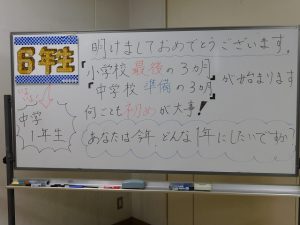 6年生
明けましておめでとうございます。
『小学校 最後の3ヵ月』
『中学校 準備の3ヵ月』
が始まります
何ごとも初めが大事!
中学
1年生
あなたは今年、どんな1年にしたいですか?